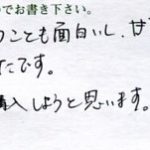 のでお書き下さい。
うことも面白いし、甘
たです。
購入しようと思います。